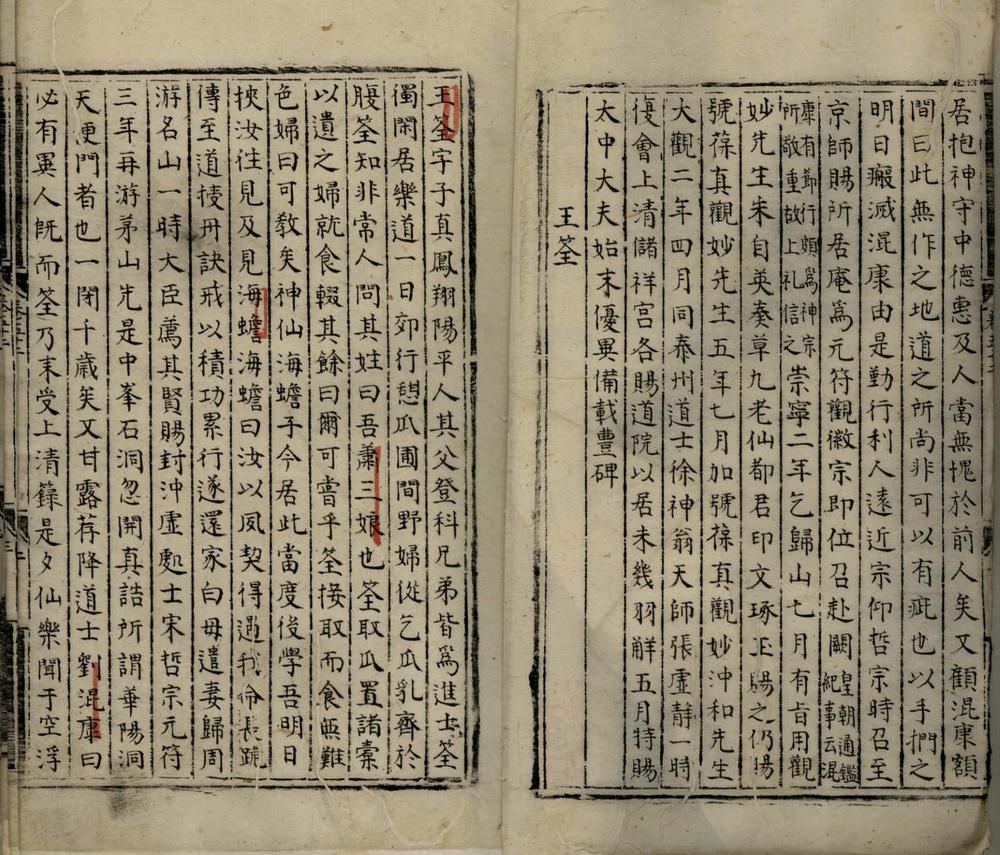 居抱神守中德惠及人當無愧於前人矣又顧混康額
間曰此無作之地道之所尚非可以有疵也以手捫之
明日瘢滅混康由是勤行利人遠近宗仰哲宗時召至
京師賜所居庵爲元符觀徽宗即位召赴闕皇朝通鑑紀事云混
康有節行頗爲神宗所敬重故上礼信之崇寧二年乞歸山七月有旨用觀
妙先生朱自英奏草九老仙都君印文琢玉賜之仍賜
號葆真觀妙先生五年七月加號葆真觀妙沖和先生
大觀二年四月同泰州道士徐神翁天師張虛靜一時
傻會上清儲祥宮各賜道院以居未幾羽解五月特賜
太中大夫始末優異備載豊碑
王筌
王筌字子真鳳翔陽平人其父登科兄弟皆爲進士筌
獨閑居樂道一日郊行憇瓜圃間野婦從乞瓜乳齊於
腹筌知非常人問其姓曰吾蕭三娘也筌取瓜置諸橐
以遺之婦就食輟其餘曰爾可嘗乎筌接取而食無難
色婦曰可敎矣神仙海蟾子今居此當度後學吾明日
挾汝徃見及見海蟾海蟾曰汝以夙契得過我命長跪
傳至道授丹訣戒以積功累行遂還家白母遣妻歸周
游名山一時大臣薦其賢賜封沖虛處士宋哲宗元符
三年再游茅山先是中峯石洞忽開真誥所謂華陽洞
天便門者也一閉千歲矣又甘露荐降道士劉混康曰
必有異人旣而筌乃来受上清籙是夕仙樂聞于空浮